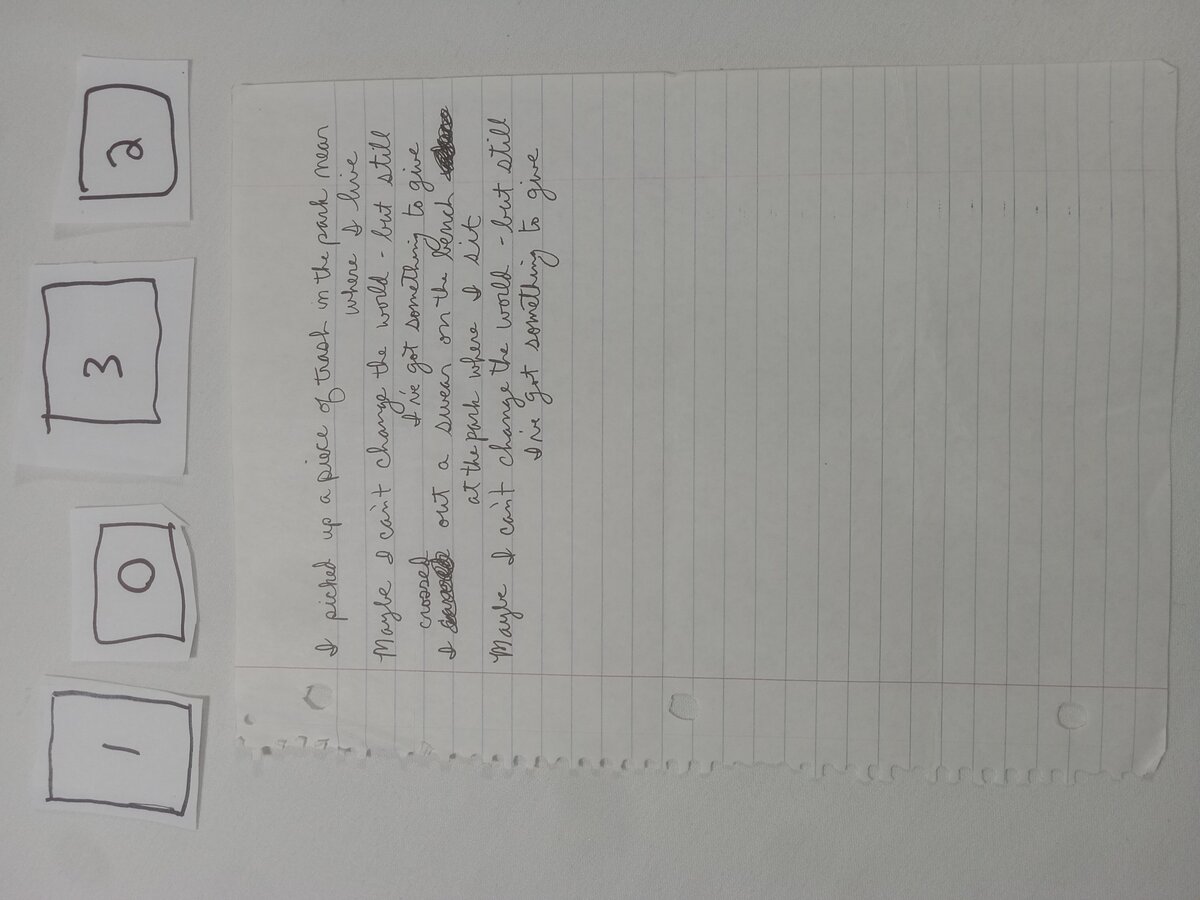 1 0 3 2
I picked up a piece of trash in the park near
where I live
Maybe I can't change the world - but still
I've got something to give
crossed
I out a swear on the bench
at the park where I sit
Maybe I can't change the world - but still
I've got something to give